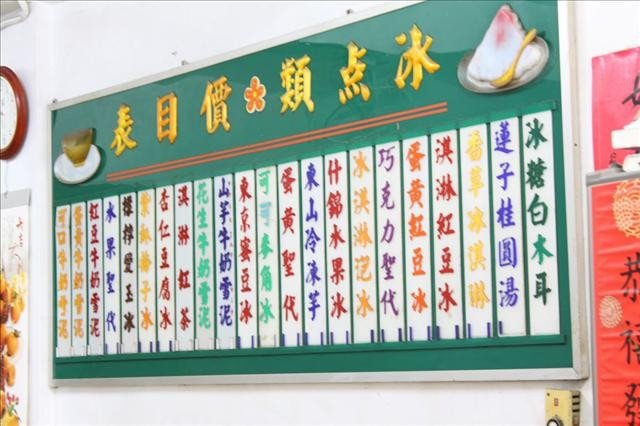 冰點類價目表
冰糖白木耳
蓮子桂圓湯
香草冰淇淋
淇淋紅豆冰
蛋黃紅豆冰
巧克力聖代
冰淇淋泡冰
什錦水果冰
東山冷凍芋
蛋黃聖代
可可參角冰
東京蜜豆冰
山芋牛奶雪泥
花生牛奶雪泥
淇淋紅茶
杏仁豆腐冰
紫蘇梅子冰
檸檬愛玉冰
水果聖代
紅豆牛奶雪泥
蛋黃牛奶雪泥
可口牛奶雪泥
恭禧發